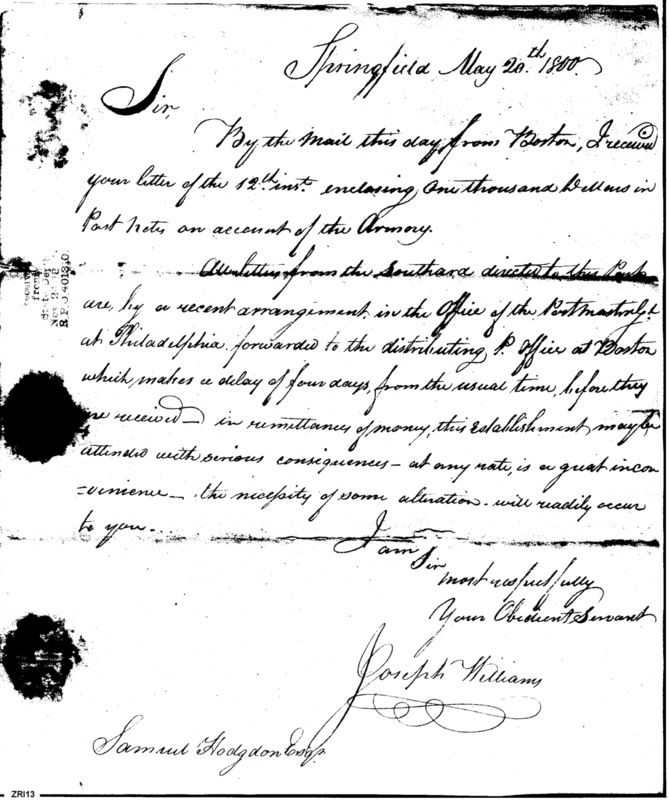 Springfield May 20.th 1800.
Sir,
By the Mail this day, from Boston, I received
your letter of the 12.th inst. enclosing One thousand Dollars in
Post Notes on account of the Armory.
All letters from the Southard directed to this Part
are, by a recent arrangement in the Office of the Postmaster Gl.
at Philadelphia forwarded to the distributing P. Office at Boston
which makes a delay of four days, from the usual time, before they
are received — in remittances of money, this Establishment may be
attended with serious consequences — at any rate, is a great incon
=venience — the necessity of some alteration will readily occur
to you. —
I am
Sir
most respectfully
Your Obedient Servant
Joseph Williams
Samuel Hodgdon Esqr.
from
State Dept.
Nov. 2
R.P.O.401810.
ZRI13